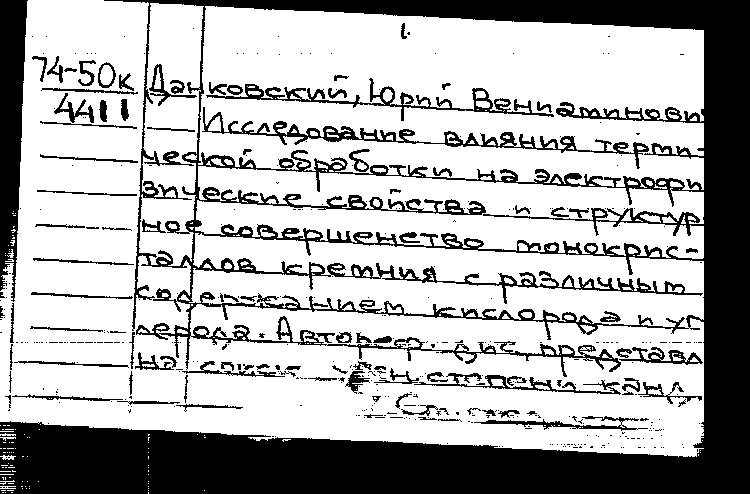 1.
74-50к
4411
Данковский, Юрий Вениаминови
Исследование влияния терми-
ческой обработки на электрофи
зические свойства и структур
ное совершенство монокрис-
таллов кремния с различным
содержанием кислорода и уг
лерода. Автореф. дис, представл
на соиск. учен. степени канд